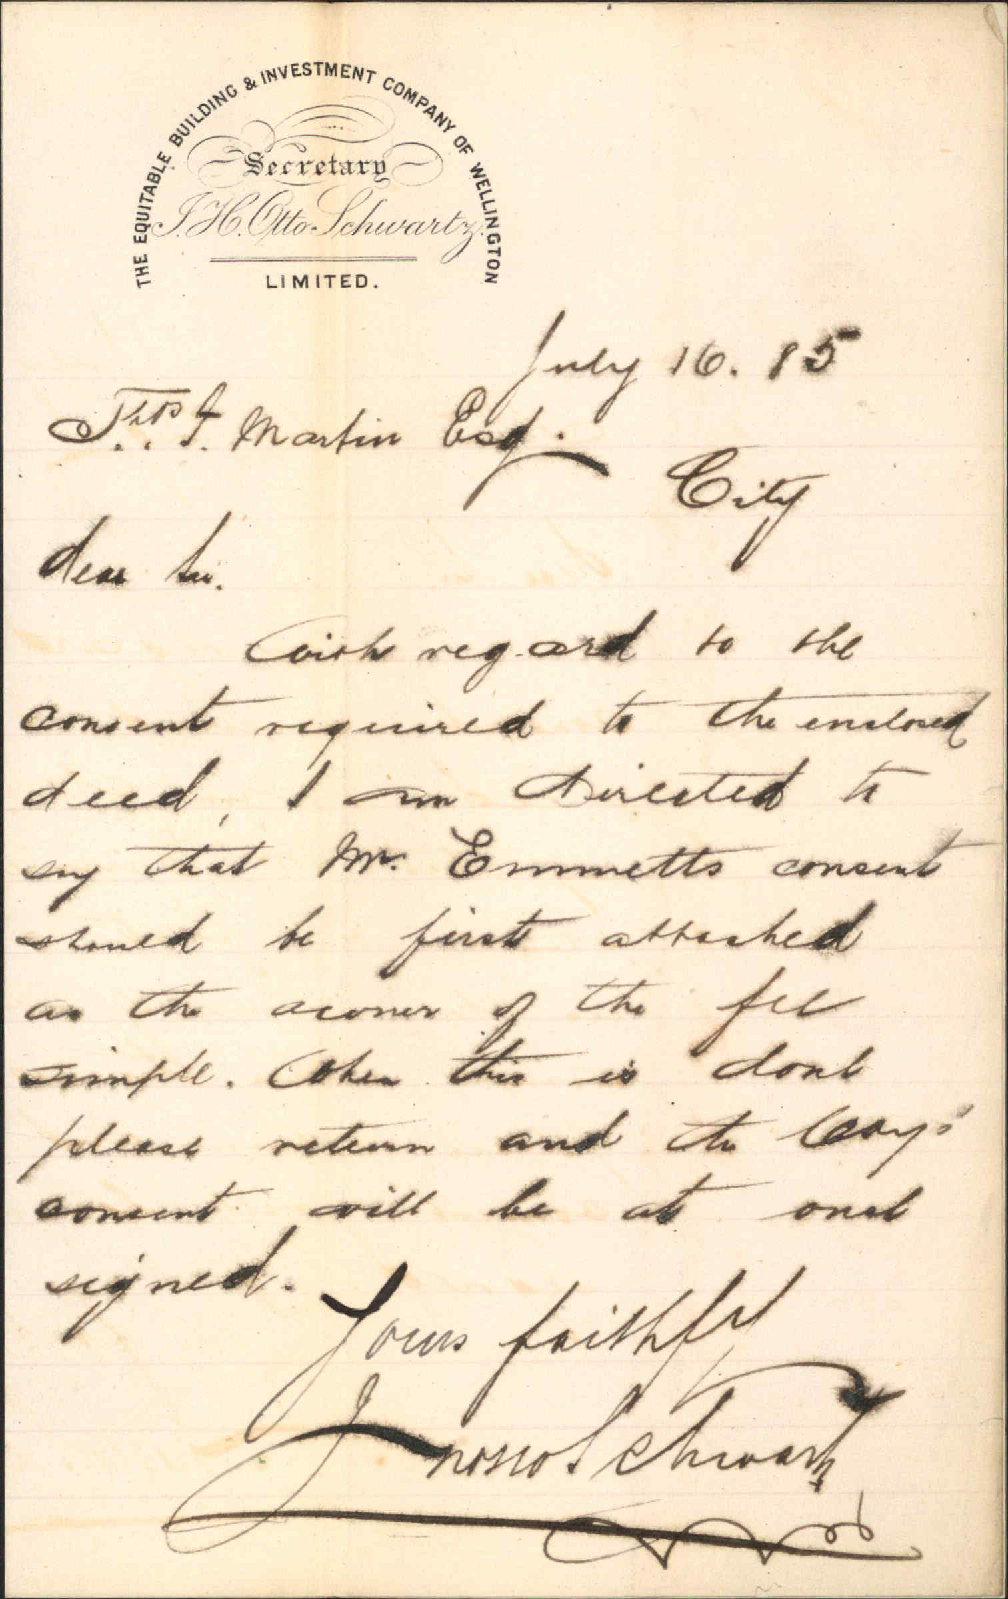 THE EQUITABLE BUILDING & INVESTMENT COMPANY OF WELLINGTON
Secretary
J. H. Otto Schwartz.
LIMITED.
July 16. 85
Thos. J. Martin Esq.
City
dear Sir.
With regard to the
consent required to the enclosed
deed, I am directed to
say that Mr. Emmetts consent
should be first attached
as the owner of the fee
simple. When this is done
please return and the Coy's
consent will be at once
signed.
Yours faithfly
Schwartz